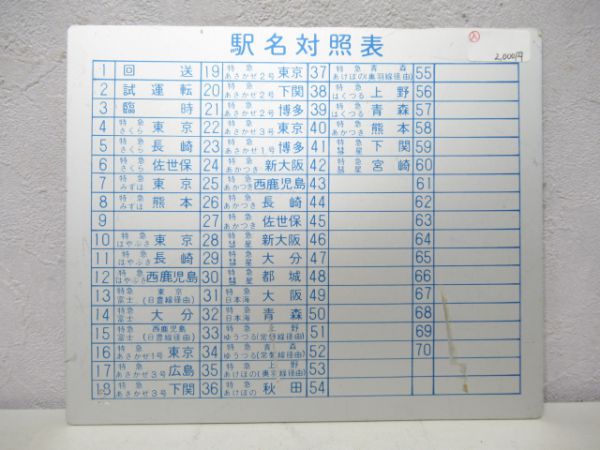 駅名対照表
入
2,000円
1 回送
2 試運転
3 臨時
4 特急 さくら 東京
5 特急 さくら 長崎
6 特急 さくら 佐世保
7 特急 みずほ 東京
8 特急 みずほ 熊本
9
10 特急 はやぶさ 東京
11 特急 はやぶさ 長崎
12 特急 はやぶさ 西鹿児島
13 特急 富士 東京 (日豊線経由)
14 特急 富士 大分
15 特急 富士 西鹿児島 (日豊線経由)
16 特急 あさかぜ1号 東京
17 特急 あさかぜ3号 広島
18 特急 あさかぜ3号 下関
19 特急 あさかぜ2号 東京
20 特急 あさかぜ2号 下関
21 特急 あさかぜ2号 博多
22 特急 あさかぜ3号 東京
23 特急 あさかぜ1号 博多
24 特急 あかつき 新大阪
25 特急 あかつき 西鹿児島
26 特急 あかつき 長崎
27 特急 あかつき 佐世保
28 特急 彗星 新大阪
29 特急 彗星 大分
30 特急 彗星 都城
31 特急 日本海 大阪
32 特急 日本海 青森
33 特急 ゆうづる 上野 (常磐線経由)
34 特急 ゆうづる 青森 (常磐線経由)
35 特急 あけぼの 上野 (奥羽線経由)
36 特急 あけぼの 秋田
37 特急 あけぼの 青森 (奥羽線経由)
38 特急 はくつる 上野
39 特急 はくつる 青森
40 特急 あかつき 熊本
41 特急 彗星 下関
42 特急 彗星 宮崎
43
44
45
46
47
48
49
50
51
52
53
54
55
56
57
58
59
60
61
62
63
64
65
66
67
68
69
70